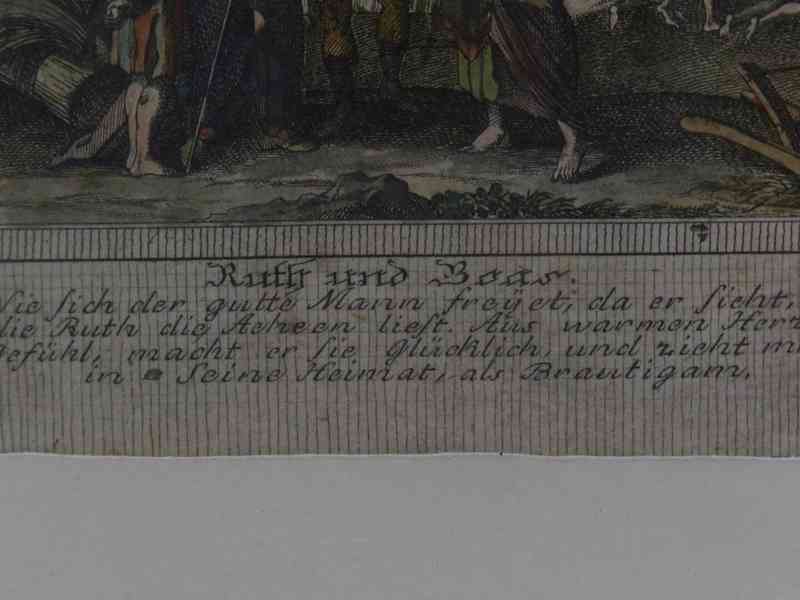 Ruth und Boas.
Wie sich der gutte Mann freÿet, da er sieht,
die Ruth die Aehren liest. Aus warmen Herz
gefühl, macht er sie glücklich, und zieht mi
in Seine Heimat, als Brautigam.